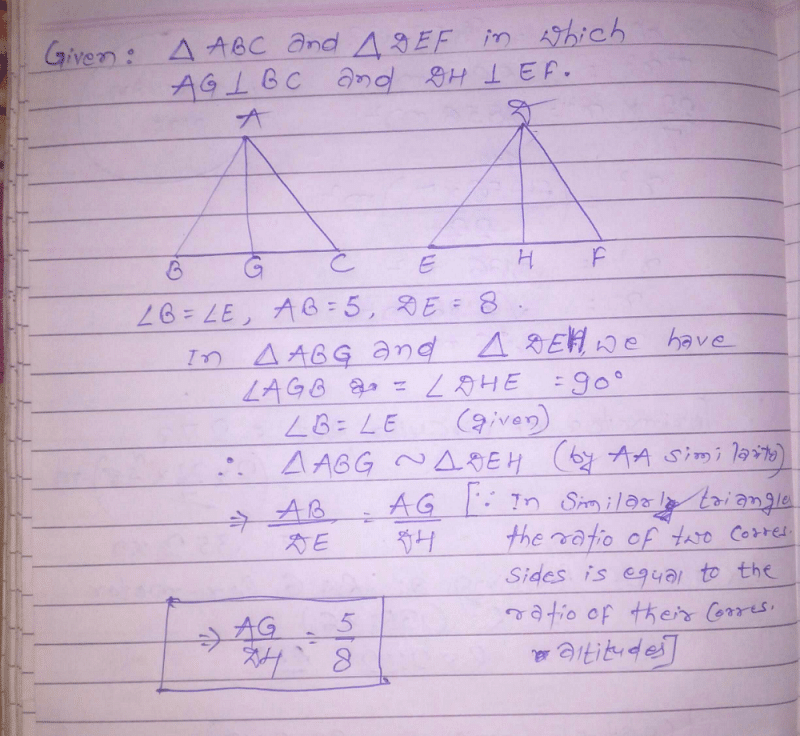 Given: △ ABC and △ DEF in which
AG ⊥ BC and DH ⊥ EF.
A D
B G C E H F
∠B = ∠E, AB = 5, DE = 8.
In △ ABG and △ DEH, we have
∠AGB = ∠DHE = 90°
∠B = ∠E (given)
∴ △ABG ~ △DEH (by AA similarity)
⇒ AB/DE = AG/DH [∵ In Similarly triangles
the ratio of two corres.
sides is equal to the
ratio of their corres.
altitudes]
⇒ AG/DH = 5/8